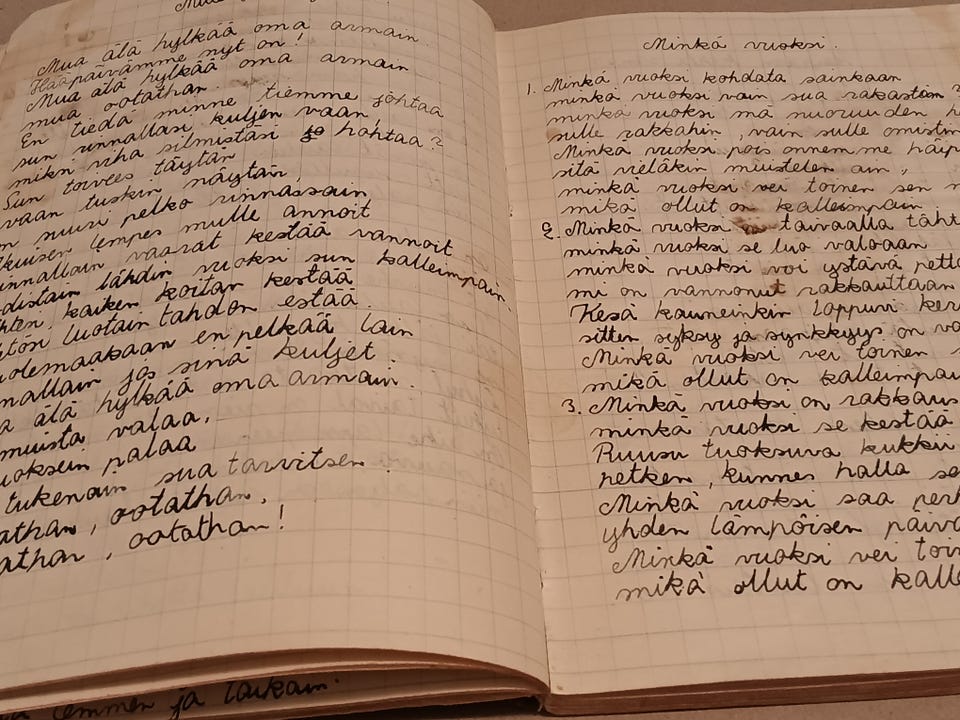 Mua älä hylkää oma armain.
Hääpäivämme nyt on!
Mua älä hylkää oma armain
mua ootathan.
En tiedä minne tiemme johtaa
sun rinnallasi kuljen vaan,
miksi viha silmistäsi hohtaa?
Sun toivees täytän
vaan tuskin näytän,
on suuri pelko rinnassain
lempes mulle annoit
vaarat kestää vannoit
lähdin vuoksi sun kalleimpain
kaiken koitan kestää
luotain tahdon estää.
en pelkää lain
jos sinä kuljet.
älä hylkää oma armain.
muista valaa,
palaa
tukenain sua tarvitsen.
ootathan,
ootathan!
lemmen ja taikain.
Minkä vuoksi.
1. Minkä vuoksi kohdata sainkaan
minkä vuoksi vain sua rakastan
minkä vuoksi mä nuoruuden
sulle rakkahin, vain sulle
Minkä vuoksi pois onnemme
sitä vieläkin muistelen ain,
minkä vuoksi vei toinen sen
mikä ollut on kalleimpain
2. Minkä vuoksi taivaalla
minkä vuoksi se luo valoaan
minkä vuoksi voi ystävä
mi on vannonut rakkauttaan
Kesä kauneinkin loppuvi
sitten syksy ja synkkyys on
Minkä vuoksi vei toinen
mikä ollut on
3. Minkä vuoksi on
minkä vuoksi se kestää
Ruusu tuoksuva kukkii
hetken, kunnes halla
Minkä vuoksi saa
yhden lämpöisen
Minkä vuoksi vei
mikä ollut on